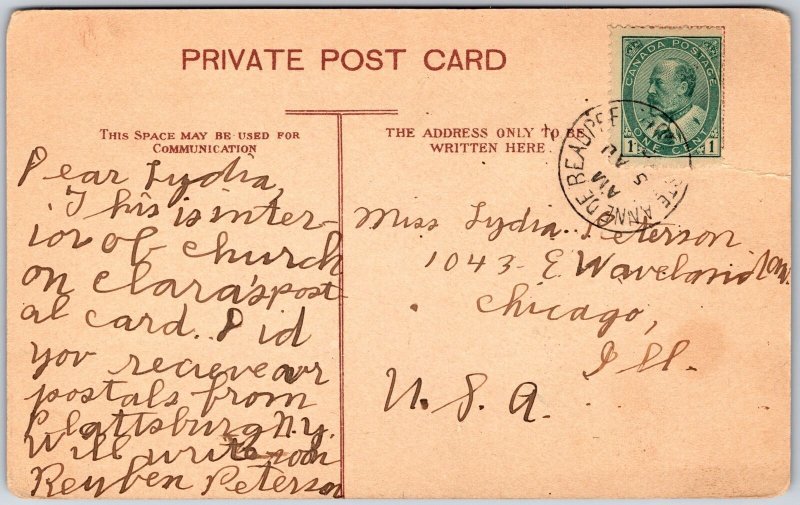 PRIVATE POST CARD
THIS SPACE MAY BE USED FOR
COMMUNICATION
THE ADDRESS ONLY TO BE
WRITTEN HERE
CANADA POSTAGE
1 ONE CENT 1
STE ANNE DE BEAUPRE
AM
5
AU
Dear Lydia,
This is inter-
ior of church
on Clara's post
al card. Did
you recieve our
postals from
Plattsburg N.Y.
Will write soon
Reuben Peterson
Miss Lydia Peterson
1043 - E. Waveland
Chicago,
Ill.
U. S. A.